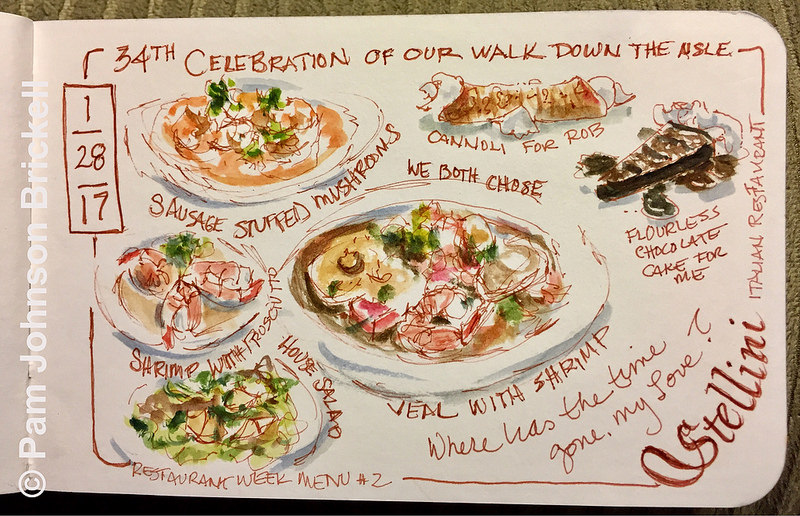 34TH CELEBRATION OF OUR WALK DOWN THE AISLE
1
28
17
SAUSAGE STUFFED MUSHROOMS
CANNOLI FOR ROB
WE BOTH CHOSE
FLOURLESS
CHOCOLATE
CAKE FOR
ME
SHRIMP WITH PROSCIUTTO
HOUSE SALAD
VEAL WITH SHRIMP
Where has the time
gone, my love?
Stellini
ITALIAN RESTAURANT
RESTAURANT WEEK MENU #2
© Pam Johnson Brickell